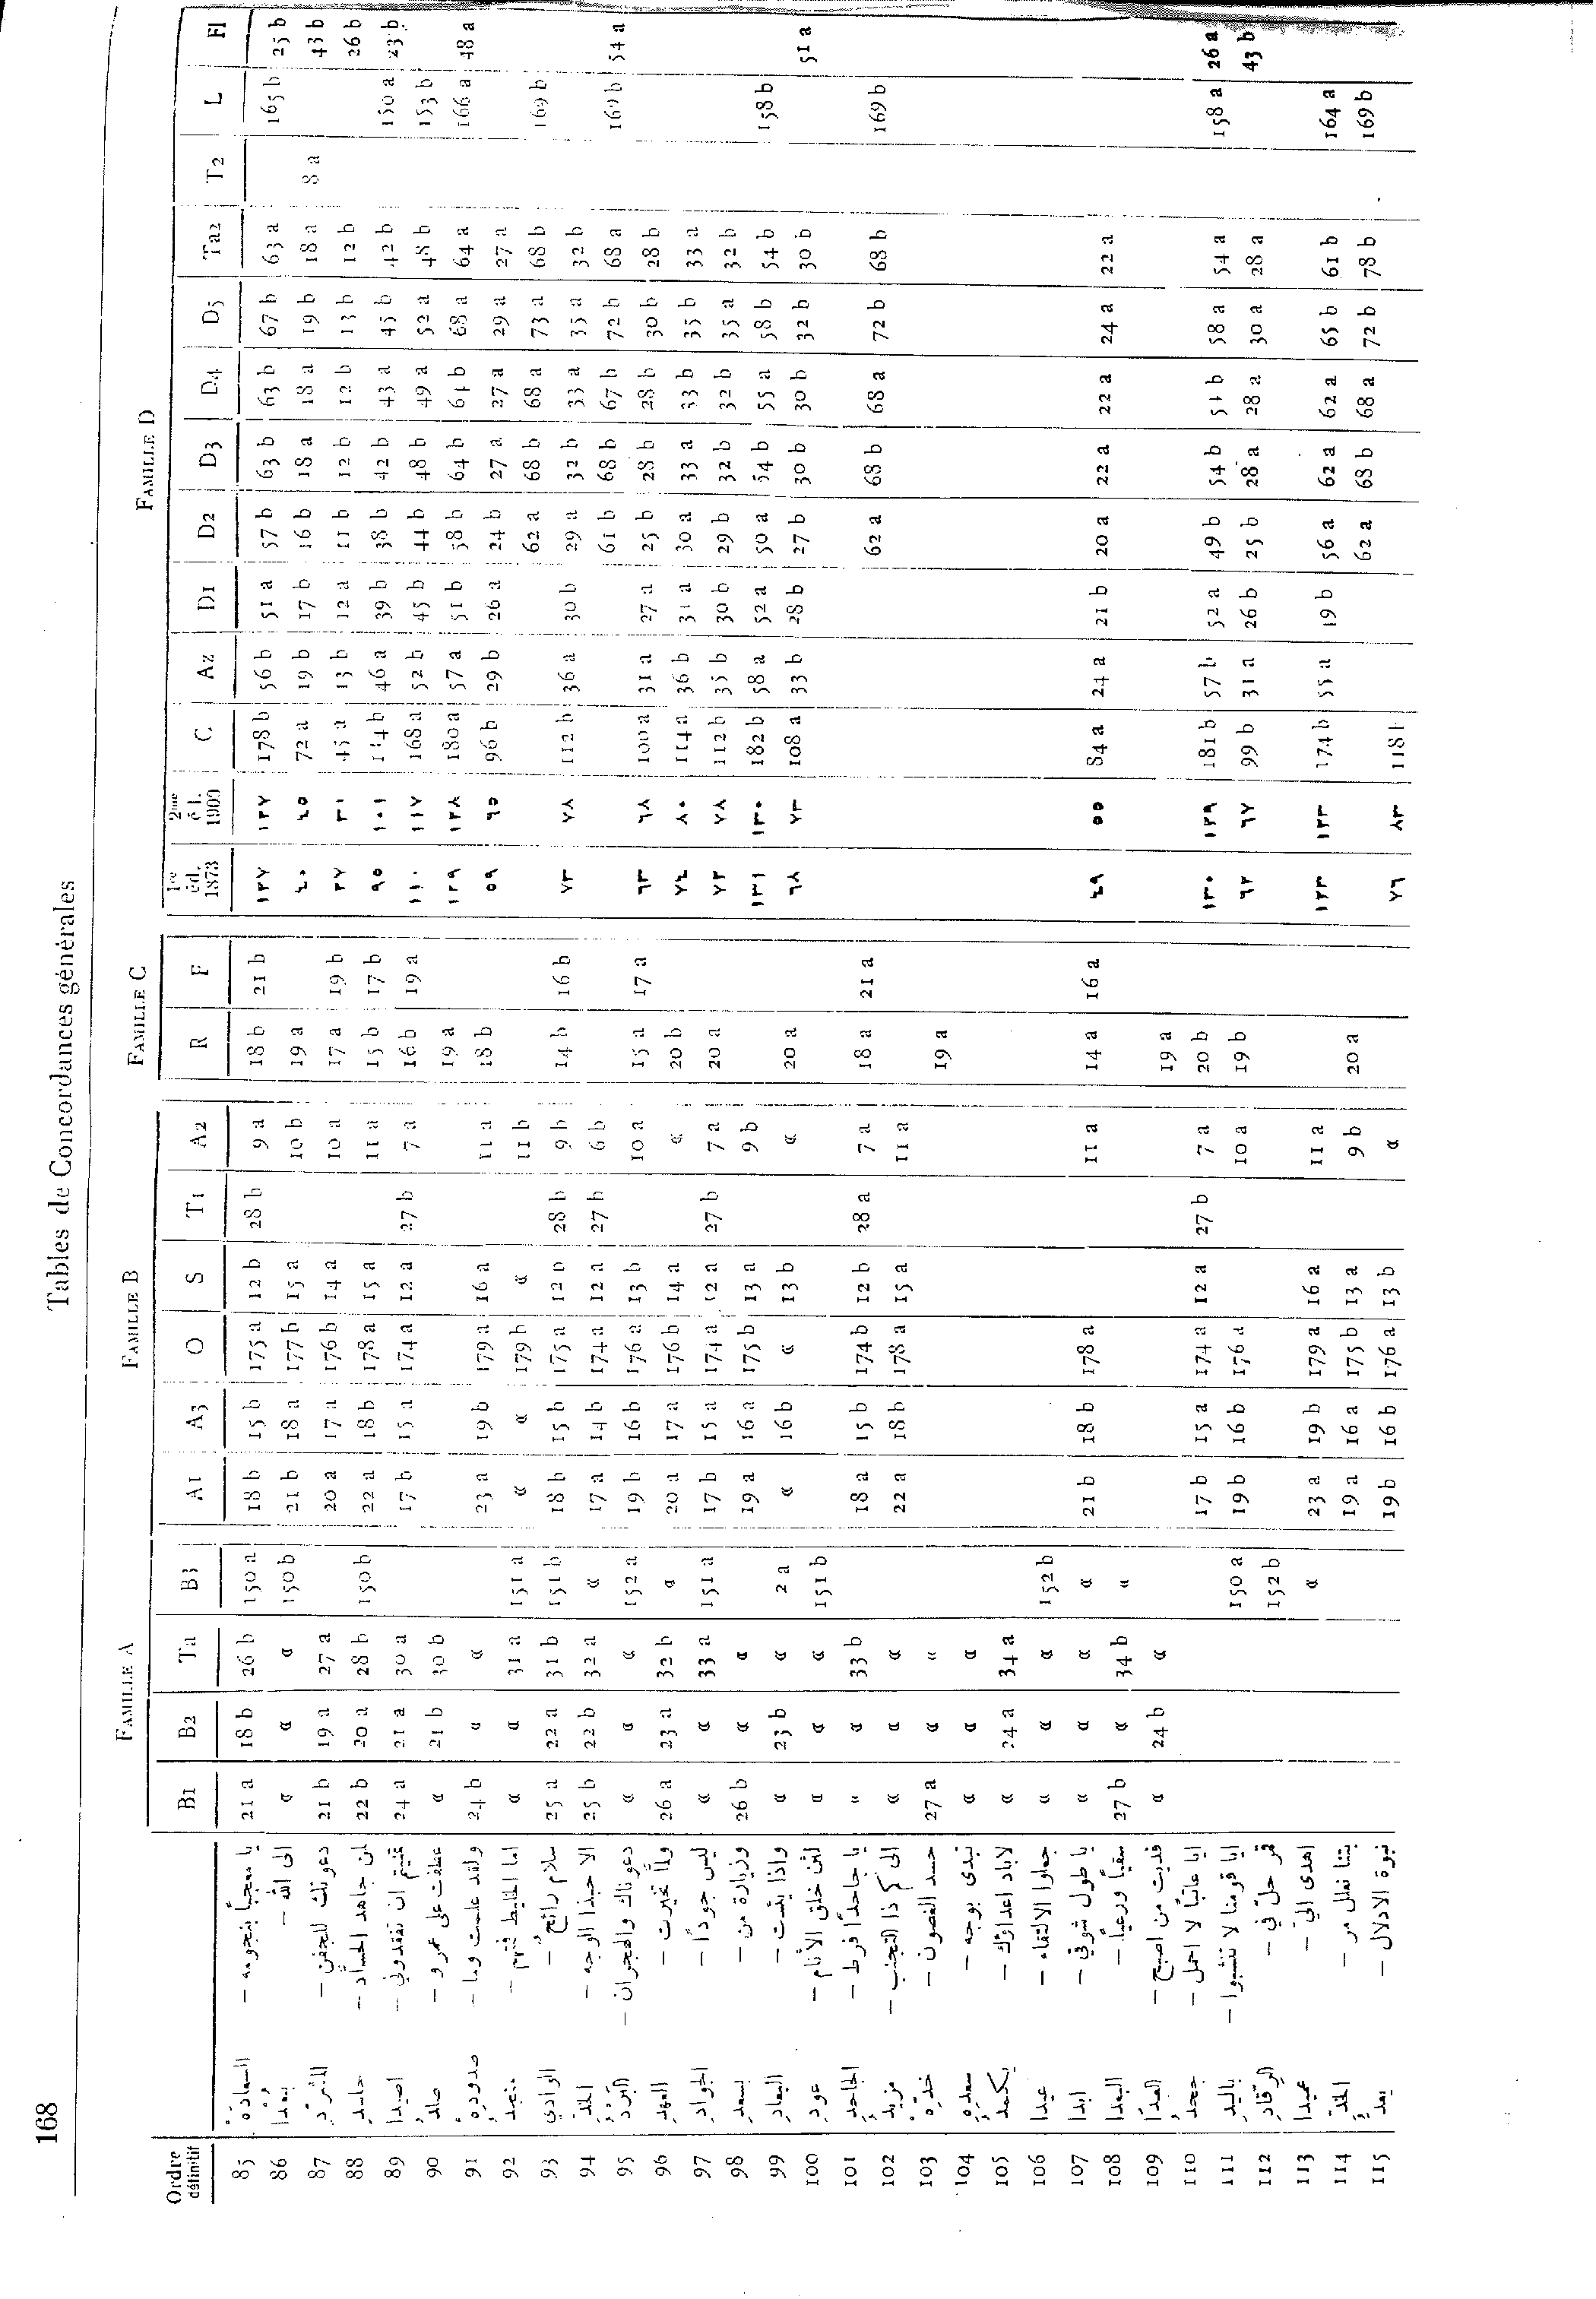 168
Tables de Concordances générales
FAMILLE A FAMILLE B FAMILLE C FAMILLE D
Ordre définitif B1 B2 Ta B3 A1 A3 O S T1 A2 R F 1re éd. 1873 2me éd. 1909 C Az D1 D2 D3 D4 D5 Ta2 T2 L Fl
85 السعادَهْ يا معجباً بنجومه – 21 a 18 b 26 b 150 a 18 b 15 b 175 a 12 b 28 b 9 a 18 b 21 b ١٢٧ ١٢٧ 178 b 56 b 51 a 57 b 63 b 63 b 67 b 63 a 165 b 25 b
86 بعْدا الى الله – « « « 150 b 21 b 18 a 177 b 15 a 10 b 19 a ٤٠ ٤٥ 72 a 19 b 17 b 16 b 18 a 18 a 19 b 18 a 8 a 43 b
87 المشرّدِ دعوتك للجفن – 21 b 19 a 27 a 20 a 17 a 176 b 14 a 10 a 17 a 19 b ٢٧ ٣١ 45 a 13 b 12 a 11 b 12 b 12 b 13 b 12 b 26 b
88 حاسدِ لمن جاهد الحسّاد – 22 b 20 a 28 b 150 b 22 a 18 b 178 a 15 a 11 a 15 b 17 b ٩٥ ١٠١ 46 a 39 b 38 b 42 b 43 a 45 b 42 b 150 a 23 b
89 اصيدا تمنيتم ان تفقدوني – 24 a 21 a 30 a 17 b 15 a 174 a 12 a 27 b 7 a 16 b 19 a ١١٠ ١١٧ 168 a 52 b 45 b 44 b 48 b 49 a 52 a 48 b 153 b
90 صالدُ عطفت على عمرو – « 21 b 30 b 19 a ١٢٩ ١٢٨ 180 a 57 a 51 b 58 b 64 b 64 b 68 a 64 a 166 a 48 a
91 صدودِهِ ولقد علمت وما – 24 b « « 23 a 19 b 179 a 16 a 11 a 18 b ٥٩ ٦٥ 96 b 29 b 26 a 24 b 27 a 27 a 29 a 27 a
92 منجدُ اما الخليط فمتهم – « « 31 a 151 a « « 179 b « 11 b 62 a 68 b 68 a 73 a 68 b 169 b
93 الوادي سلام رائحٌ – 25 a 22 a 31 b 151 b 18 b 15 b 175 a 12 b 28 b 9 b 14 b 16 b ٧٣ ٧٨ 112 b 36 a 30 b 29 a 32 b 33 a 35 a 32 b
94 الخدِّ الا حبذا الوجه – 25 b 22 b 32 a « 17 a 14 b 174 a 12 a 27 b 6 b 61 b 68 b 67 b 72 b 68 a 169 b 54 a
95 البَرَدْ دعوناك والهجران – « « « 152 a 19 b 16 b 176 a 13 b 10 a 15 a 17 a ٦٣ ٦٨ 100 a 31 a 27 a 25 b 28 b 28 b 30 b 28 b
96 العهدِ ولمّا تخيّرت – 26 a 23 a 32 b « 20 a 17 a 176 b 14 a « 20 b ٧٤ ٨٠ 114 a 36 b 31 a 30 a 33 a 33 b 35 b 33 a
97 الجوادِ ليس جوداً – « « 33 a 151 a 17 b 15 a 174 a 12 a 27 b 7 a 20 a ٧٣ ٧٨ 112 b 35 b 30 b 29 b 32 b 32 b 35 a 32 b
98 بسعدِ وزيارة من – 26 b « « 19 a 16 a 175 b 13 a 9 b ١٣١ ١٣٠ 182 b 58 a 52 a 50 a 54 b 55 a 58 b 54 b 158 b
99 البعادِ واذا يئست – « 23 b « 2 a « 16 b « 13 b « 20 a ٦٨ ٧٣ 108 a 33 b 28 b 27 b 30 b 30 b 32 b 30 b 51 a
100 عودِ لئن خلق الأنام – « « « 151 b
101 الجاحدِ يا جاحداً فرط – « « 33 b 18 a 15 b 174 b 12 b 28 a 7 a 18 a 21 a 62 a 68 b 68 a 72 b 68 b 169 b
102 مزيدُ الى كم ذا التجنب – « « « 22 a 18 b 178 a 15 a 11 a
103 خدِّهْ حسد الغصون – 27 a « « 19 a
104 سعدِهِ تبدى بوجه – « « «
105 بكمدْ لاباد اعداؤك – « 24 a 34 a
106 عيدا جعلوا الالتقاء – « « « 152 b
107 ابدا يا طول شوقي – « « « « 21 b 18 b 178 a 11 a 14 a 16 a ٤٩ ٥٥ 84 a 24 a 21 b 20 a 22 a 22 a 24 a 22 a
108 البعدا سقياً ورعياً – 27 b « 34 b «
109 العِدَا فديت من اصبح – « 24 b « 19 a
110 جحدُ ايا عاتباً لا احمل – 17 b 15 a 174 a 12 a 27 b 7 a 20 b ١٣٠ ١٢٩ 181 b 57 b 52 a 49 b 54 b 51 b 58 a 54 a 158 a 26 a
111 باليدِ ايا قومنا لا تنشبوا – 150 a 19 b 16 b 176 a 10 a 19 b ٦٢ ٦٧ 99 b 31 a 26 b 25 b 28 a 28 a 30 a 28 a 43 b
112 الرقادِ قمر حلّ في – 152 b
113 عميدا اهدى اليّ – « 23 a 19 b 179 a 16 a 11 a ١٢٣ ١٢٣ 174 b 55 a 19 b 56 a 62 a 62 a 65 b 61 b 164 a
114 الخدِّ بتنا نعلل مر – 19 a 16 a 175 b 13 a 9 b 20 a 62 a 68 b 68 a 72 b 78 b 169 b
115 بعدُ نبوة الادلال – 19 b 16 b 176 a 13 b « ٧٦ ٨٣ 118 b